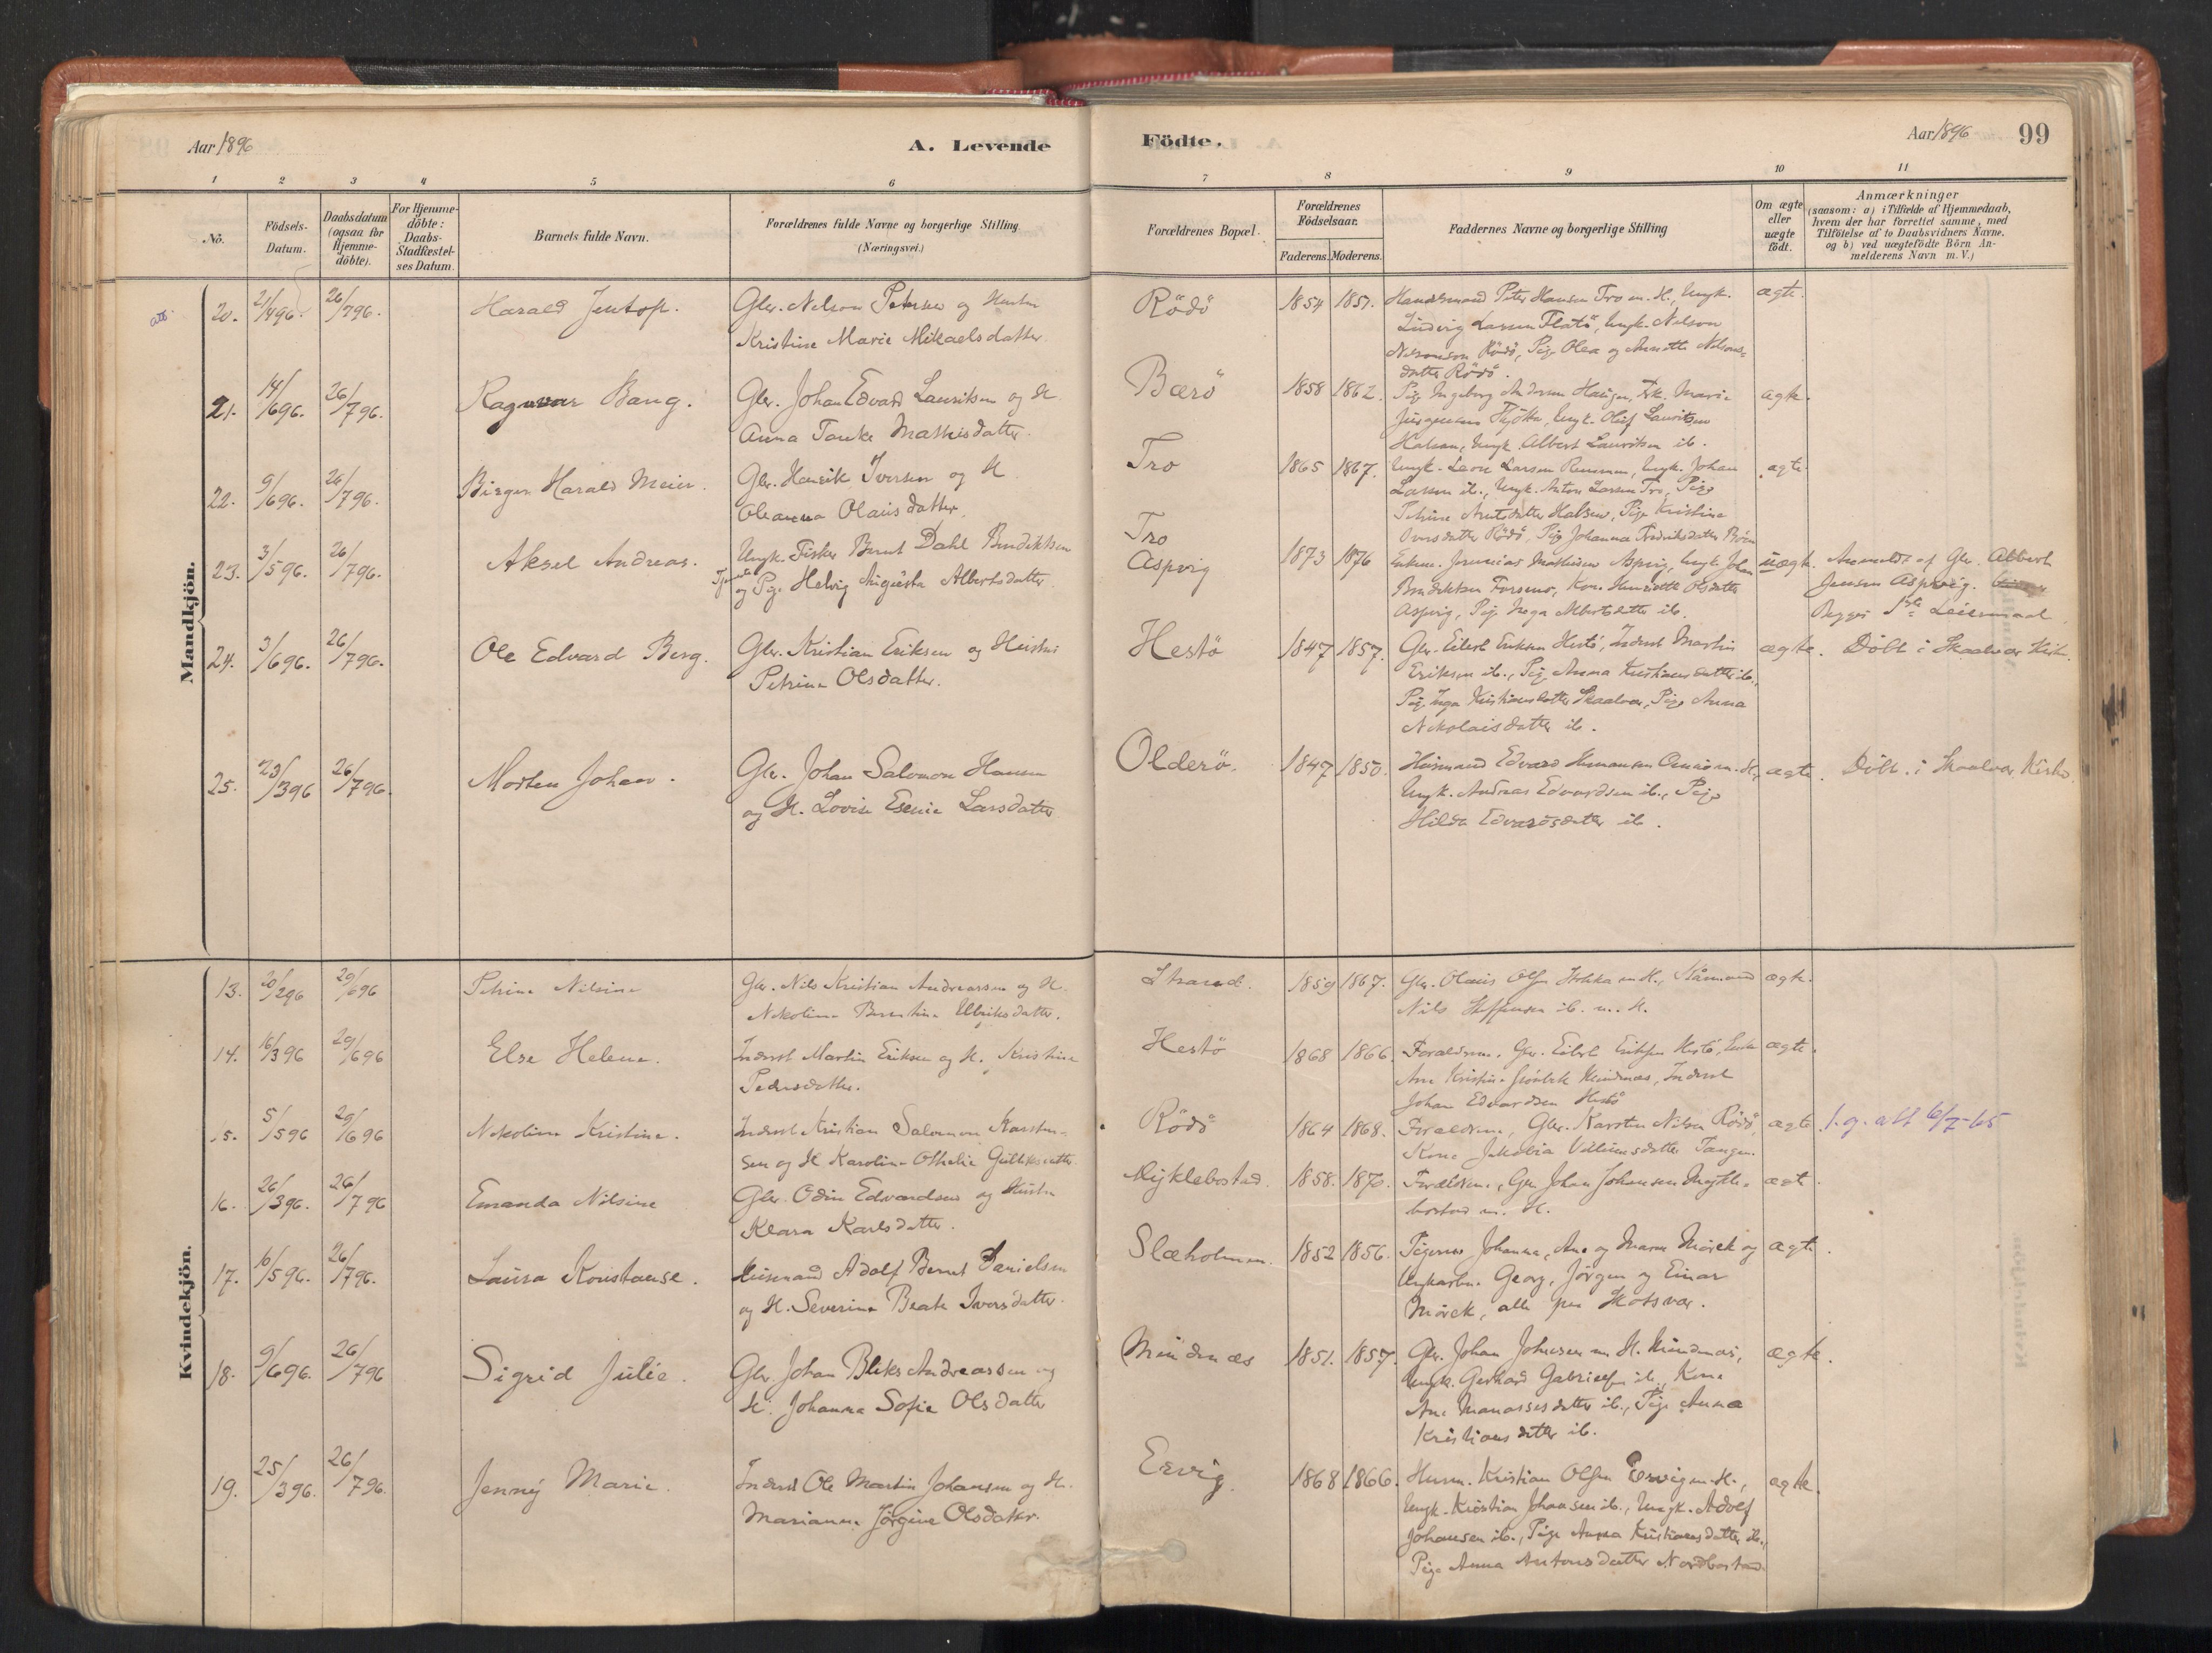 Aar 1896
A. Levende
Födte.
Aar 1896
99
1 2 3 4 5 6 7 8 9 10 11
No.
Födsels-Datum.
Daabsdatum (ogsaa for Hjemme-döbte).
For Hjemme-döbte: Daabs-Stadfæstel-ses Datum.
Barnets fulde Navn.
Forældrenes fulde Navne og borgerlige Stilling (Næringsvei.)
Forældrenes Bopæl.
Forældrenes Födselsaar.
Faderens. Moderens.
Faddernes Navne og borgerlige Stilling
Om ægte eller uægte födt.
Anmærkninger
(saasom: a) i Tilfælde af Hjemmedaab,
hvem der har forrettet samme, med
Tilföielse af to Daabsvidners Navne.
og b) ved uægtefödte Börn An-
melderens Navn m. V.)
Mandkjön.
att.
20. 21/4 96. 26/7 96. Harald Jentof. Gbr. Nelson Petersen og Hustru
Kristine Marie Mikaelsdatter
Rödö 1854 1851. Handelsmand Peter Hansen Tro m. H., Ungk. ægte.
Ludvig Larsen Flatö, Ungk. Nelson
Nelsonsen Rödö, Pige Olea og Anette Nelsons-
datter Rödö.
21. 14/6 96. 26/7 96. Ragnvar Bang. Gbr. Johan Edvard Lauritsen og H.
Anna Tanke Mathisdatter.
Bærö 1858 1862. Pig. Ingeborg Andersen Haugen, Frk. Marie ægte.
Jürgensen Thjötta, Ungk. Oluf Lauritsen
Halsen, Ungk. Albert Lauritsen ib.
22. 9/6 96. 26/7 96. Birger Harald Meier. Gbr. Henrik Iversen og H
Oleanna Olaisdatter.
Tro 1865 1867. Ungk. Larsen, Ungk. Johan ægte
Larsen ib., Ungk. Anton Larsen Tro, Pige
Petrine Arntsdatter Halsen, Pige Kristine
Iversdatter Rödö, Pig. Johanna Fredriksdatter
23. 3/5 96. 26/7 96. Aksel Andreas. Ungk. Fisker Bernt Dahl Bendiktsen
og Pig. Helvig Augusta Albertsdatter
Tro
Aspvig 1873 1876 Mathisen Aspvig, Ungk. Johan uægt. Anmeldt af Gbr. Albert
Bendiktsen Forsenö, Kone Henriette Olsdatter Jensen Aspvig.
Aspvig, Pig. Inga Albertsdatter ib. Begges 1ste Leiermaal.
24. 3/6 96. 26/7 96. Ole Edvard Berg. Gbr. Kristian Eriksen og Hustru
Petrine Olsdatter.
Hestö 1847 1857. Gbr. Eilert Eriksen Hestö, Inderst Martin ægte. Döbt i Skaalvær Kirke.
Eriksen ib., Pig. Anna Kristiansdatter ib.,
Pig. Inga Kristiansdatter Skaalvær, Pige Anna
Nikolaisdatter ib.
25. 23/3 96 26/7 96. Morten Johan. Gbr. Johan Salomon Hansen
og H. Lovise Esenie Larsdatter
Olderö. 1847 1850. Husmand Edvard Hemansen m. H., ægte. Döbt. i Skaalvær Kirke.
Ungk. Andreas Edvardsen ib., Pige
Hilda Edvardsdatter ib.
Kvindekjön.
13. 20/2 96 29/6 96 Petrine Nilsine Gbr. Nils Kristian Andreassen og H.
Nikoline Berntine Ulriksdatter.
Strand. 1859 1867. Gbr. Olaus Olsen m. H., ægte.
Nils Steffensen ib. m. H.
14. 16/3 96 29/6 96 Else Helene. Inderst Martin Eriksen og H. Kristine
Pedersdatter.
Hestö 1868 1866. Forældrene. Gbr. Eilert Eriksen Hestö, Enke ægte.
Ane Kristine Grönbek Mindnæs, Inderst
Johan Edvardsen Hestö
15. 5/5 96 29/6 96 Nikoline Kristine. Inderst Kristian Salomon Karsten-
sen og H Karoline Othelie Gulliksdatter
Rödö 1864 1868. Forældrene, Gbr. Karsten Nilsen Rödö, ægte. l.g. att 6/7-65
Kone Jakobia Villumsdatter Tangen.
16. 26/3 96. 26/7 96 Emanda Nilsine Gbr. Odin Edvardsen og Hustru
Klara Karlsdatter.
Myklebostad. 1858. 1870. Forældrene, Gbr Johan Johansen Mykle- ægt.
bostad m. H.
17. 16/5 96. 26/7 96. Laura Konstanse. Husmand Adolf Bernt Danielsen
og H. Severine Beate Iversdatter.
Slæholmen. 1852 1856. Pigerne Johanna, Ane og Maren Mörck og ægte.
Ungkarle. Georg, Jörgen og Einar
Mörck, alle paa Skotsvær.
18. 9/6 96. 26/7 96 Sigrid Julie. Gbr. Johan Bliks Andreassen og
H. Johanna Sofie Olsdatter
Mindnæs 1851. 1857. Gbr. Johan Johnsen m. H. Mindnæs, ægte.
Ungk. Gerhard Gabrielsen ib., Kone
Ane Manassesdatter ib., Pige Anna
Kristiansdatter ib.
19. 25/3 96. 26/7 96. Jenny Marie. Inderst Ole Martin Johansen og H.
Marianne Jörgine Olsdatter.
Ervig. 1868 1866. Husm. Kristian Olsen Ervig m. H., ægte.
Ungk. Kristian Johansen ib., Ungk. Adolf
Johansen ib., Pige Anna Kristiansdatter ib.,
Pige Anna Antonsdatter Nordbostad.